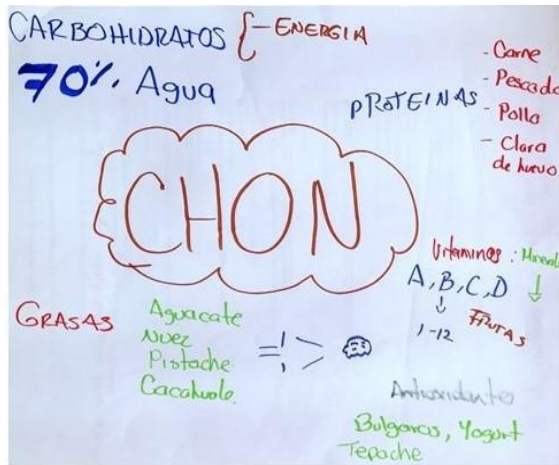 CARBOHIDRATOS { - ENERGIA
70% Agua
PROTEINAS
- Carne
- Pescado
- Pollo
- Clara
de huevo
CHON
Vitaminas : Mineral
A, B, C, D
1-12
FRUTAS
GRASAS
Aguacate
Nuez
Pistache
Cacahuate
Antioxidantes
Bulgaros, Yogurt
Tepache